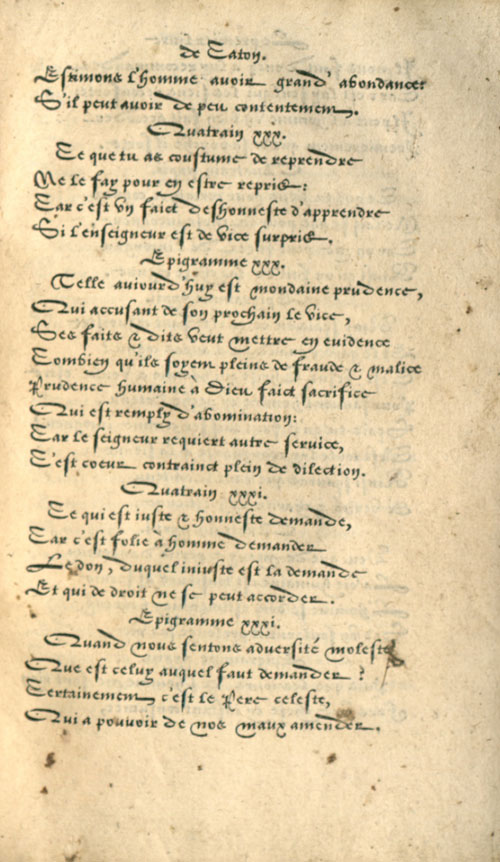 de Caton.
Estimons l'homme avoir grand' abondance:
S'il peut avoir de peu contentement.
Quatrain xxx.
Ce que tu as coustume de reprendre
Ne le fay pour en estre repris:
Car c'est vn faict deshonneste d'apprendre
Si l'enseigneur est de vice surpris.
Epigramme xxx.
Telle auiourd'huy est mondaine prudence,
Qui accusant de son prochain le vice,
Ses faits & dits veut mettre en evidence
Combien qu'ils soyent pleins de fraude & malice
Prudence humaine à Dieu faict sacrifice
Qui est remply d'abomination:
Car le seigneur requiert autre service,
C'est coeur contrainct plein de dilection.
Quatrain xxxi.
Ce qui est iuste & honneste demande,
Car c'est folie à homme demander
Le don, duquel iniuste est la demande
Et qui de droit ne se peut accorder.
Epigramme xxxi.
Quand nous sentons adversité moleste
Que est celuy auquel faut demander?
Certainement c'est le Pere celeste,
Qui a pouvoir de nos maux amender.